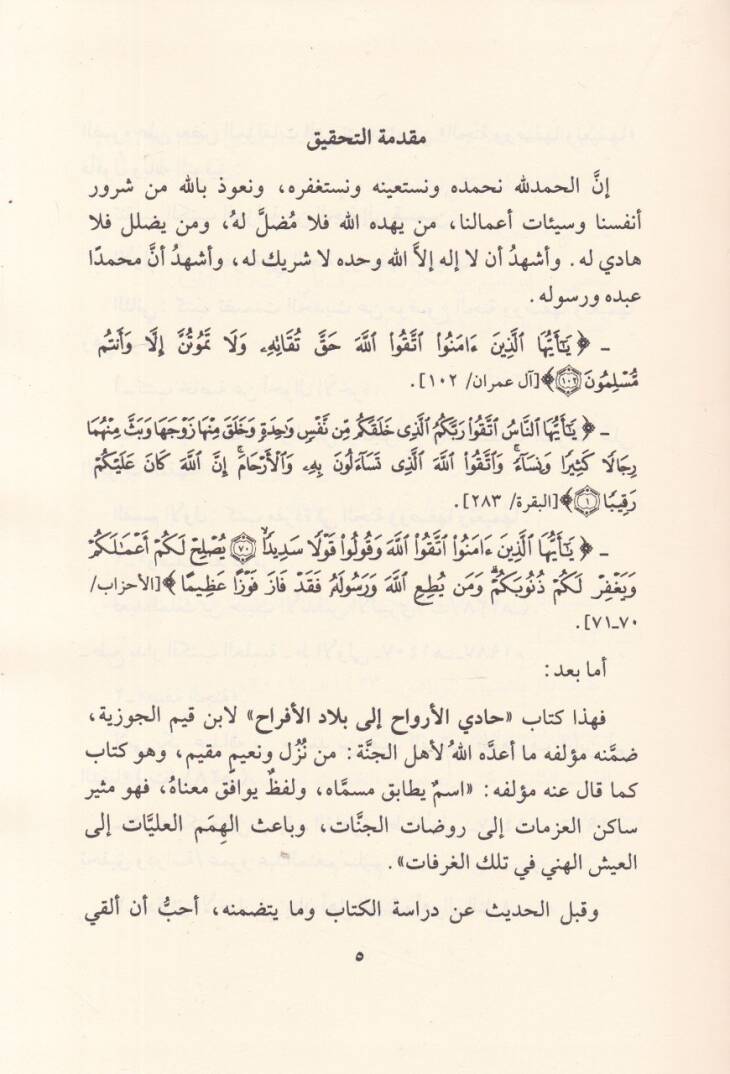 مقدمة التحقيق
إنَّ الحمدلله نحمده ونستعينه ونستغفره، ونعوذ بالله من شرور
أنفسنا وسيئات أعمالنا، من يهده الله فلا مُضلَّ لهُ، ومن يضلل فلا
هادي له. وأشهدُ أن لا إله إلاَّ الله وحده لا شريك له، وأشهدُ أنَّ محمدًا
عبده ورسوله.
ـ ﴿ يَٰٓأَيُّهَا ٱلَّذِينَ ءَامَنُوا۟ ٱتَّقُوا۟ ٱللَّهَ حَقَّ تُقَاتِهِۦ وَلَا تَمُوتُنَّ إِلَّا وَأَنتُم
مُّسْلِمُونَ ١٠٢﴾[آل عمران/ ١٠٢].
ـ ﴿ يَٰٓأَيُّهَا ٱلنَّاسُ ٱتَّقُوا۟ رَبَّكُمُ ٱلَّذِى خَلَقَكُم مِّن نَّفْسٍ وَٰحِدَةٍ وَخَلَقَ مِنْهَا زَوْجَهَا وَبَثَّ مِنْهُمَا
رِجَالًا كَثِيرًا وَنِسَآءً ۚ وَٱتَّقُوا۟ ٱللَّهَ ٱلَّذِى تَسَآءَلُونَ بِهِۦ وَٱلْأَرْحَامَ ۚ إِنَّ ٱللَّهَ كَانَ عَلَيْكُمْ
رَقِيبًا ١﴾[البقرة/ ٢٨٣].
ـ ﴿ يَٰٓأَيُّهَا ٱلَّذِينَ ءَامَنُوا۟ ٱتَّقُوا۟ ٱللَّهَ وَقُولُوا۟ قَوْلًا سَدِيدًا ٧٠ يُصْلِحْ لَكُمْ أَعْمَٰلَكُمْ
وَيَغْفِرْ لَكُمْ ذُنُوبَكُمْ ۗ وَمَن يُطِعِ ٱللَّهَ وَرَسُولَهُۥ فَقَدْ فَازَ فَوْزًا عَظِيمًا ﴾[الأحزاب/
٧٠ـ٧١].
أما بعد:
فهذا كتاب «حادي الأرواح إلى بلاد الأفراح» لابن قيم الجوزية،
ضمَّنه مؤلفه ما أعدَّه اللهُ لأهل الجنَّة: من نُزُل ونعيمٍ مقيم، وهو كتاب
كما قال عنه مؤلفه: «اسمٌ يطابق مسمَّاه، ولفظٌ يوافق معناهُ، فهو مثير
ساكن العزمات إلى روضات الجنَّات، وباعث الهِمَم العليَّات إلى
العيش الهني في تلك الغرفات».
وقبل الحديث عن دراسة الكتاب وما يتضمنه، أحبُّ أن ألقي
٥